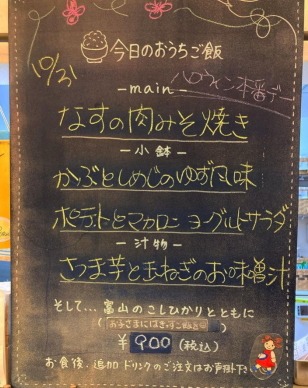 今日のおうちご飯
10/31
ハロウィン本番デー
-main-
なすの肉みそ焼き
-小鉢-
かぶとしめじのゆず風味
ポテトとマカロニ ヨーグルトサラダ
-汁物-
さつま芋と玉ねぎのお味噌汁
そして…富山のこしひかりとともに
¥900(税込)
お食後、追加ドリンクのご注文はお声掛下さい